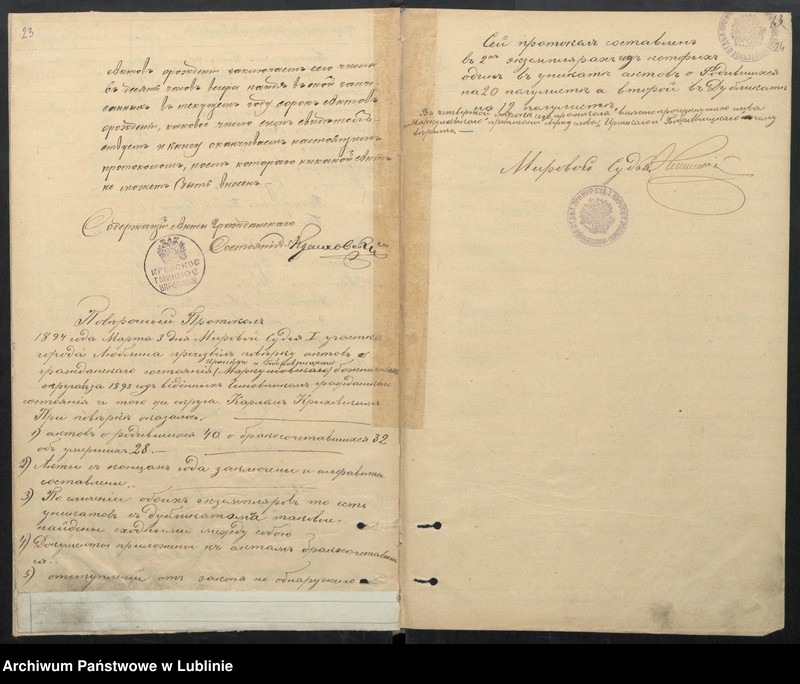 23
актовъ рожденія заключаетъ сего числа
въ десять часовъ вечера найдя въ ней запи-
санныхъ въ текущемъ году сорокъ актовъ
рожденія, каковое число симъ свидѣтель-
ствуетъ и книгу оканчиваетъ настоящимъ
протоколомъ, послѣ котораго никакой актъ
не можетъ быть внесенъ
Содержащій Акты Гражданскаго
Состоянія
ГМИННОЕ
УПРАВЛЕНІЕ
Повѣрочный Протоколъ
1894 года Марта 3 дня Мировой Судья I участка
города Люблина произвелъ повѣрку актовъ
гражданскаго состоянія
округа за 1893 годъ ведённыхъ Чиновникомъ гражданскаго
состоянія и того же округа Карломъ
При повѣркѣ оказалось.
1) актовъ о родившихся 40 о бракосочетавшихся 32
объ умершихъ 28.
2) Акты съ концомъ года заключены и алфавиты
составлены.
3) По сличеніи обоихъ экземпляровъ то есть
уникатовъ съ дубликатами таковые
найдены сходными между собою
4) Документы приложены къ актамъ бракосочетавших
ся.
5) отступленій отъ закона не обнаружено
24
Сей протоколъ составленъ
въ 2хъ экземплярахъ изъ которыхъ
одинъ въ уникатъ актовъ о Родившихся
на 20 полулистѣ а второй въ Дубликатъ
на 12 полулистѣ
Въ четвертой строкѣ сего протокола
вѣримъ.
Мировой Судья
Archiwum Państwowe w Lublinie